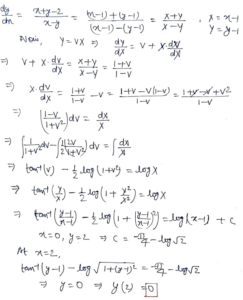 dy/dx = (x+y-2)/(x-y) = ((x-1)+(y-1))/((x-1)-(y-1)) = (X+Y)/(X-Y) , X = x-1
Y = y-1
Now, Y = VX ⇒ dY/dX = V + X·dV/dX
⇒ V + X·dV/dX = (X+Y)/(X-Y) = (1+V)/(1-V)
⇒ X·dV/dX = (1+V)/(1-V) - V = (1+V-V(1-V))/(1-V) = (1+V-V+V²)/(1-V)
⇒ ((1-V)/(1+V²))dV = dX/X
⇒ ∫1/(1+V²) dV - 1/2∫2V/(1+V²) dV = ∫dX/X
⇒ tan⁻¹(V) - 1/2 log(1+V²) = log X
⇒ tan⁻¹(Y/X) - 1/2 log(1 + Y²/X²) = log X
⇒ tan⁻¹((y-1)/(x-1)) - 1/2 log(1 + ((y-1)/(x-1))²) = log(x-1) + C
x=0, y=2 ⇒ C = -π/4 - log√2
At x=2,
tan⁻¹(y-1) - log√(1+(y-1)²) = -π/4 - log√2
⇒ y=0 ⇒ y(2) = 0